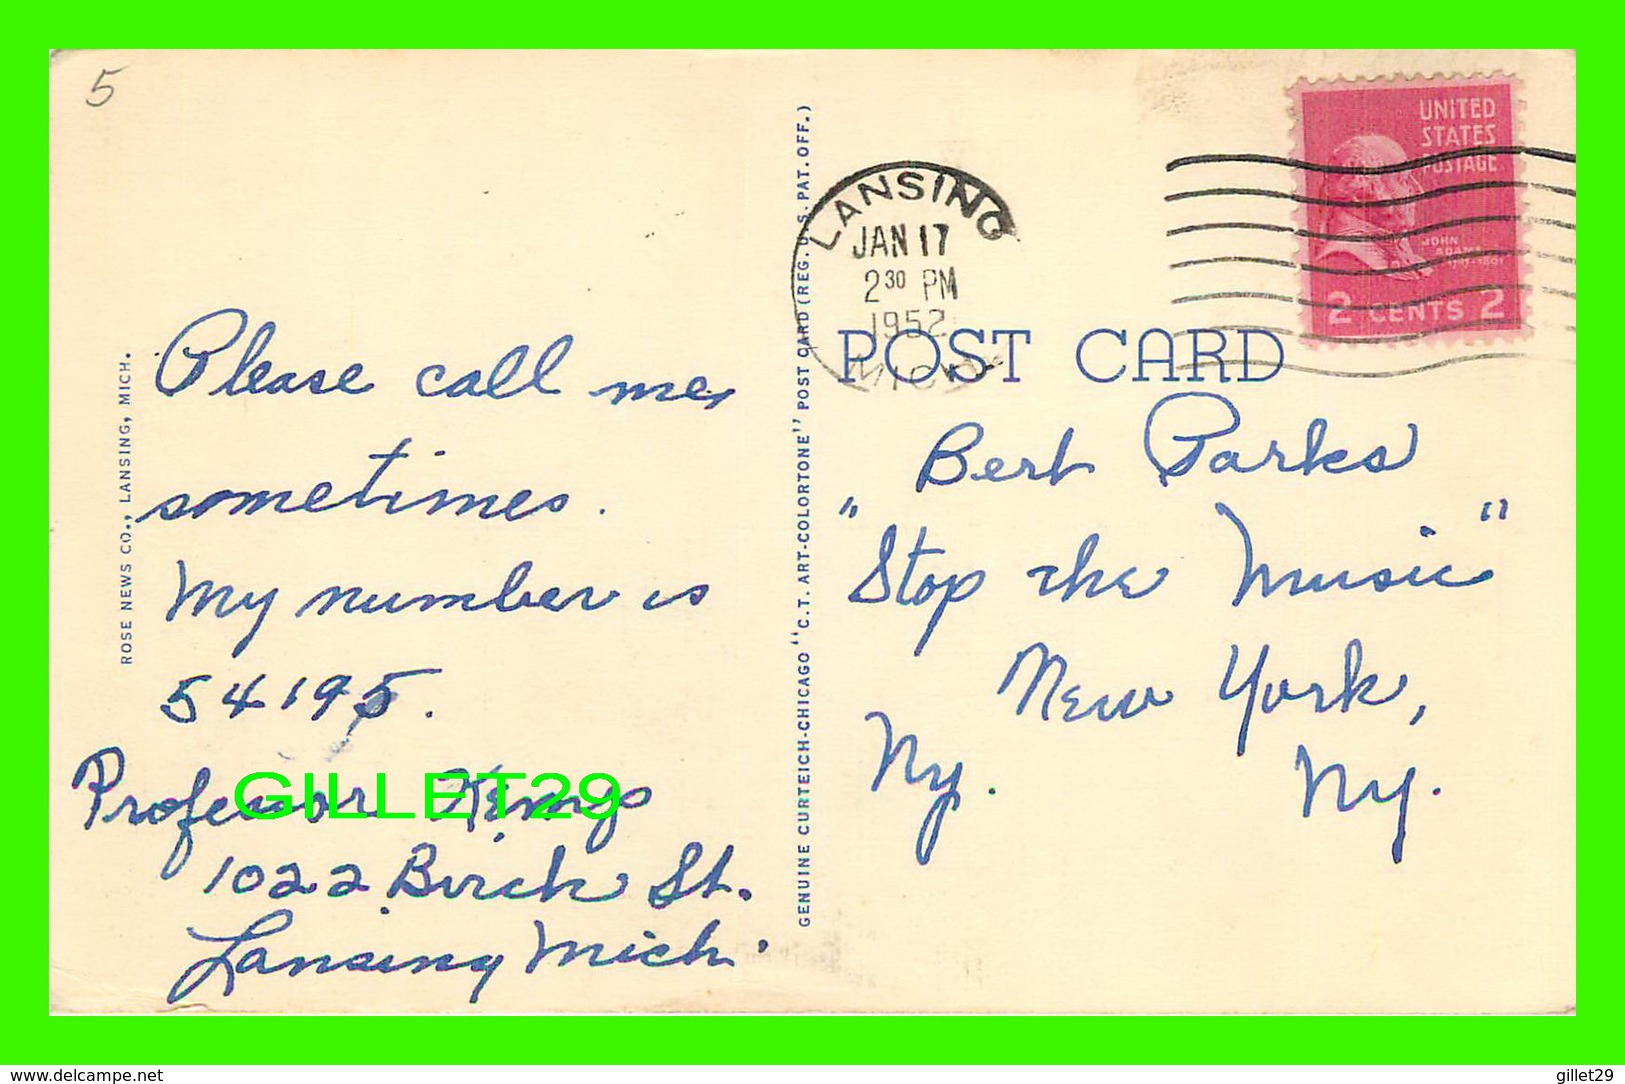 5
LANSING
JAN 17
2 30 PM
1952
MICH.
UNITED
STATES
POSTAGE
JOHN
ADAMS
1797-1801
2 CENTS 2
POST CARD
ROSE NEWS CO., LANSING, MICH.
GENUINE CURTEICH-CHICAGO "C.T. ART-COLORTONE" POST CARD (REG. U.S. PAT. OFF.)
Please call me,
sometimes.
My number is
54195.
Professor
1022 Birch St.
Lansing Mich.
Bert Parks
"Stop the Music"
New York,
Ny. Ny.
GILLET29
www.delcampe.net
gillet29